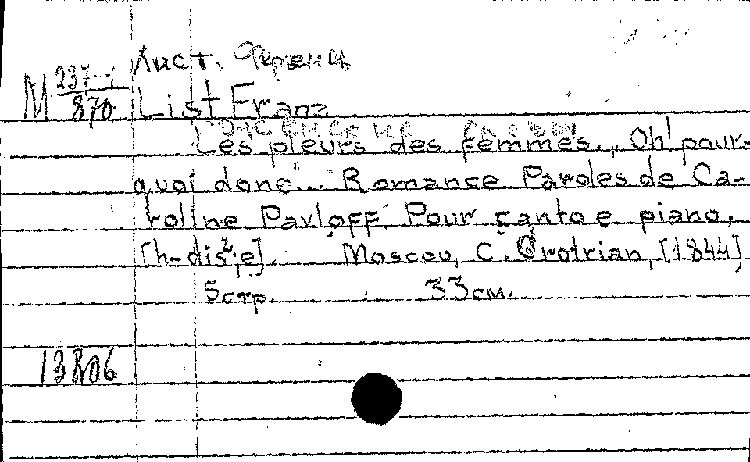 Лист, Ференц
M 237-1/870 List Franz
Les pleurs des femmes... "Oh! pour-
quoi donc"... Romance Paroles de Ca-
roline Pavloff. Pour canto e piano.
[h-dis²; e]. Moscou, C. Grotrian, [1844]
5 стр. 33 см.
13806